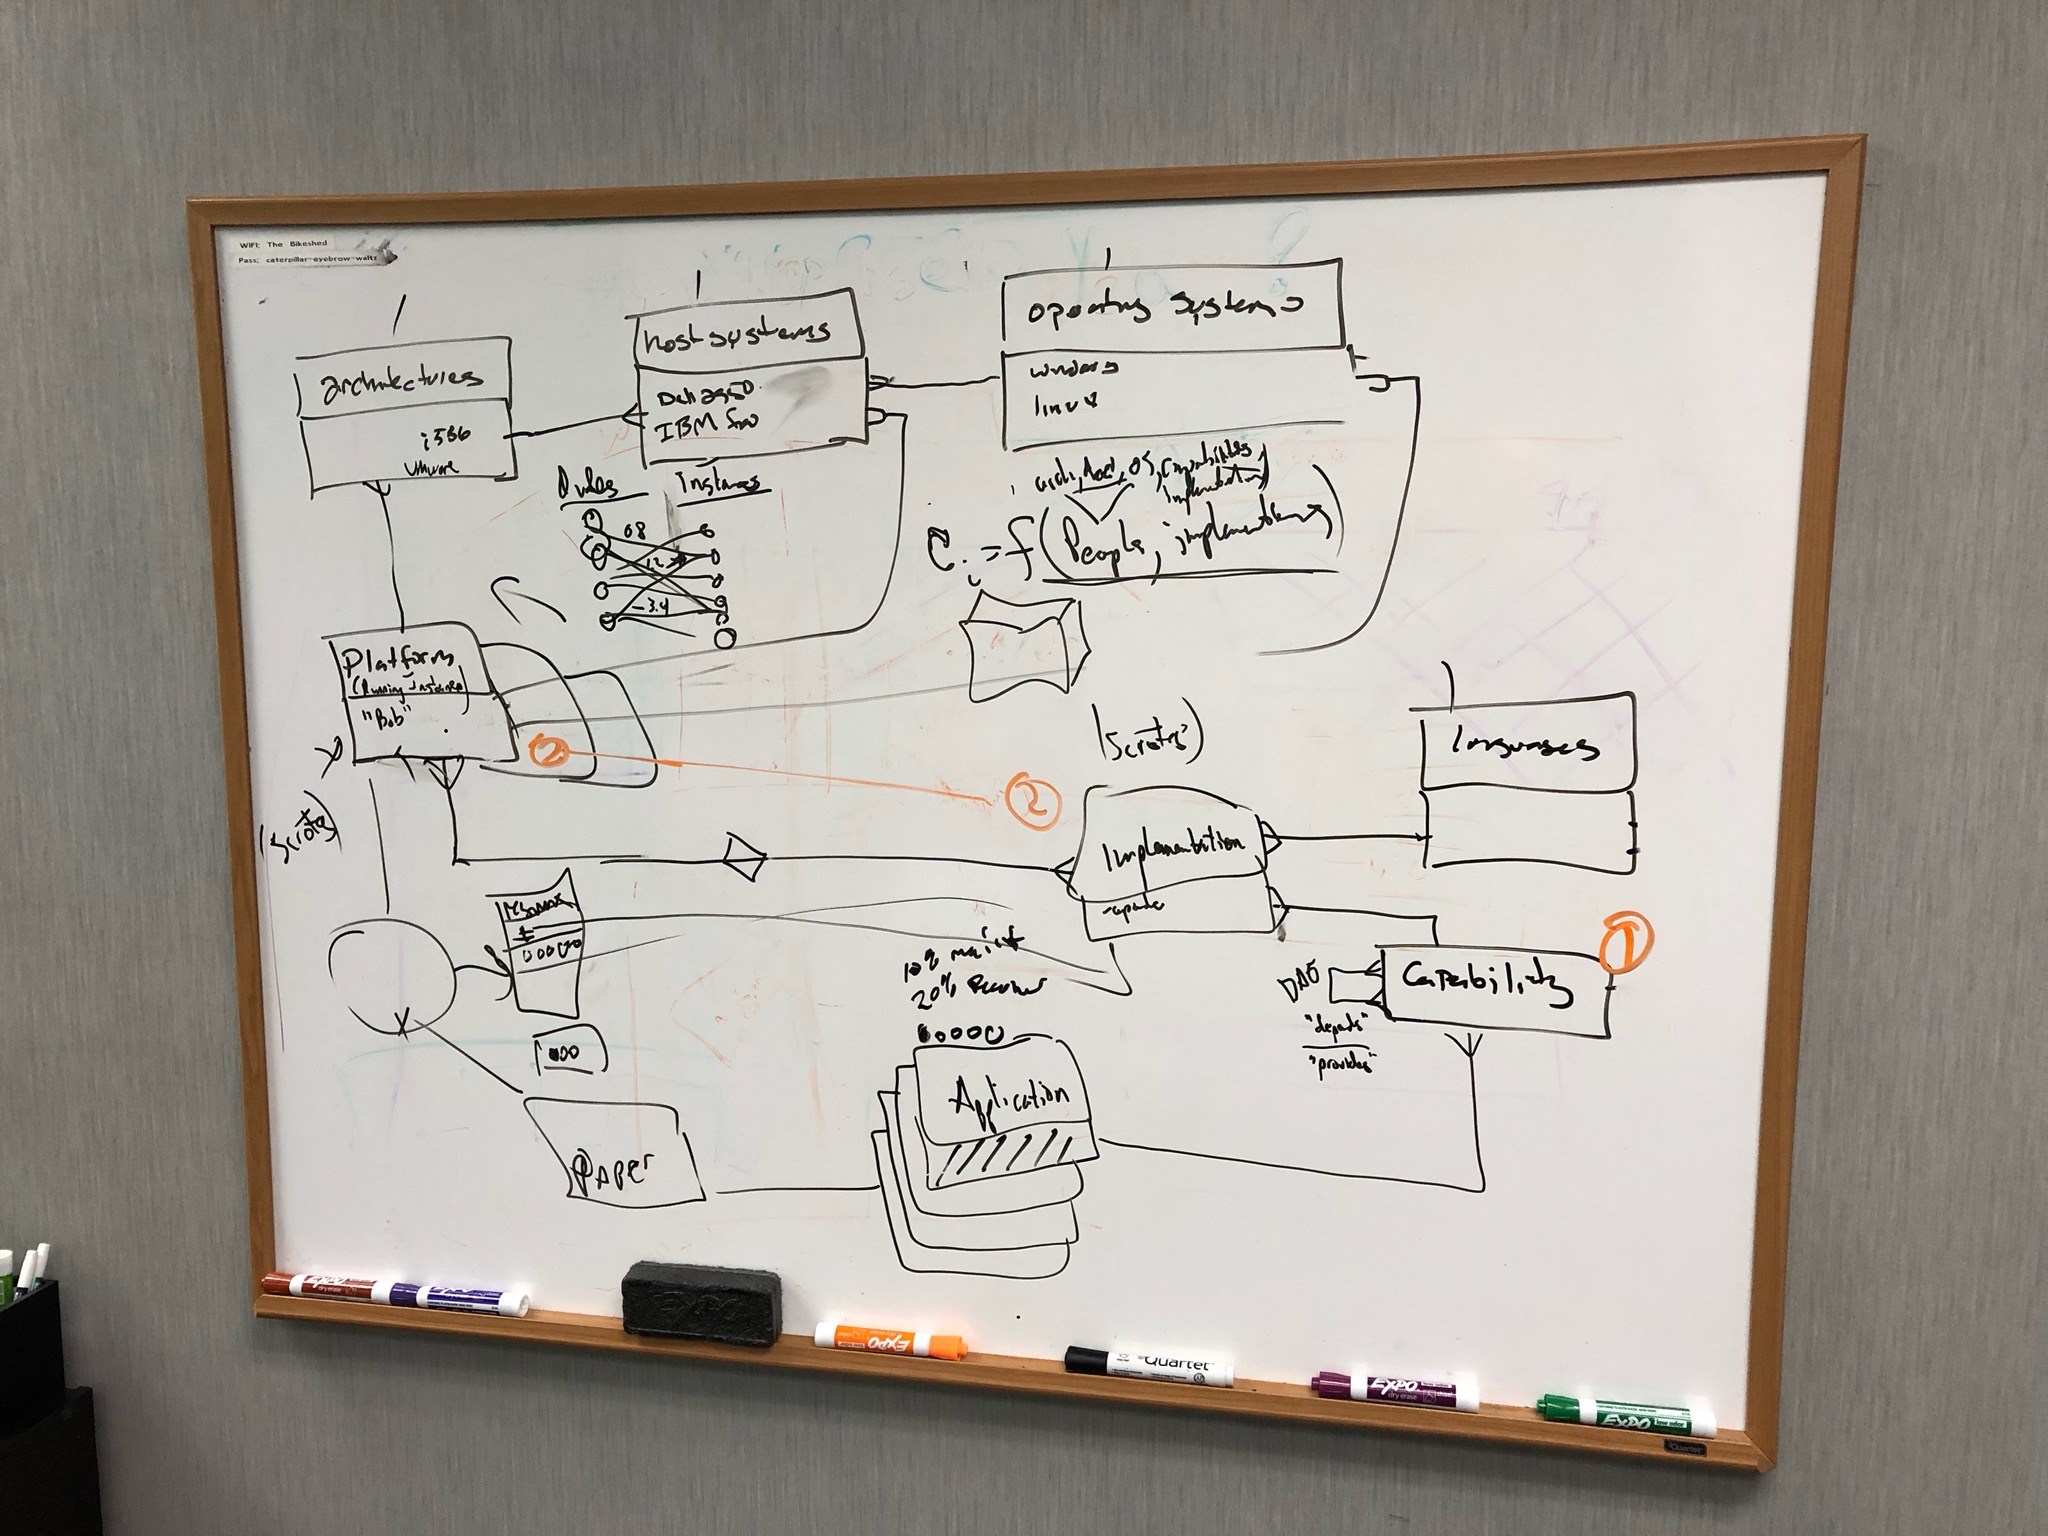 WIFI: The Bikeshed
Pass: caterpillar-eyebrow-waltz
architectures
i586
vmware
host systems
IBM foo
operating systems
windows
linux
Rules
instances
08
1.2
-3.4
arch, host, OS, capabilities,
implementations
C i = f(People, implementations)
Platform
(Running Instances)
"Bob"
2
2
(Scripts)
(Scripts)
languages
Implementation
1
Capability
DAG
"depends"
"provides"
10% maint
20%
Application
PAPEr
EXPO
EXPO
EXPO
EXPO
Quartet
EXPO
dry erase
EXPO
low odor
Quartet